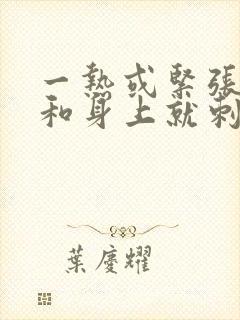 一熱或緊張
和身上就刺
葉慶耀